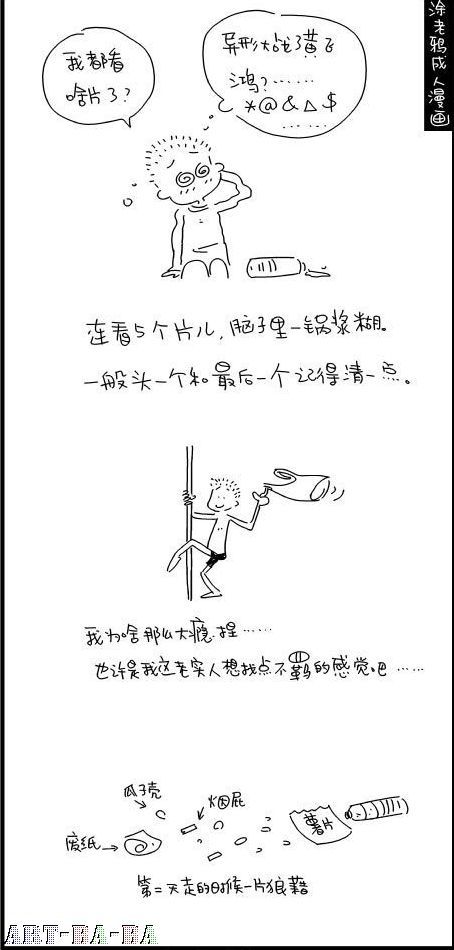 涂老鸦成人漫画
我都看
啥片了?
异形大战了黄飞
鸿?……
*@&△$
……
连看5个片儿,脑子里一锅浆糊。
一般头一个和最后一个记得清一点。
我为啥那么大瘾捏……
也许是我这老实人想找点不羁的感觉吧……
瓜子壳
烟屁
废纸
薯片
第二天走的时候一片狼藉
ART-BA-BA